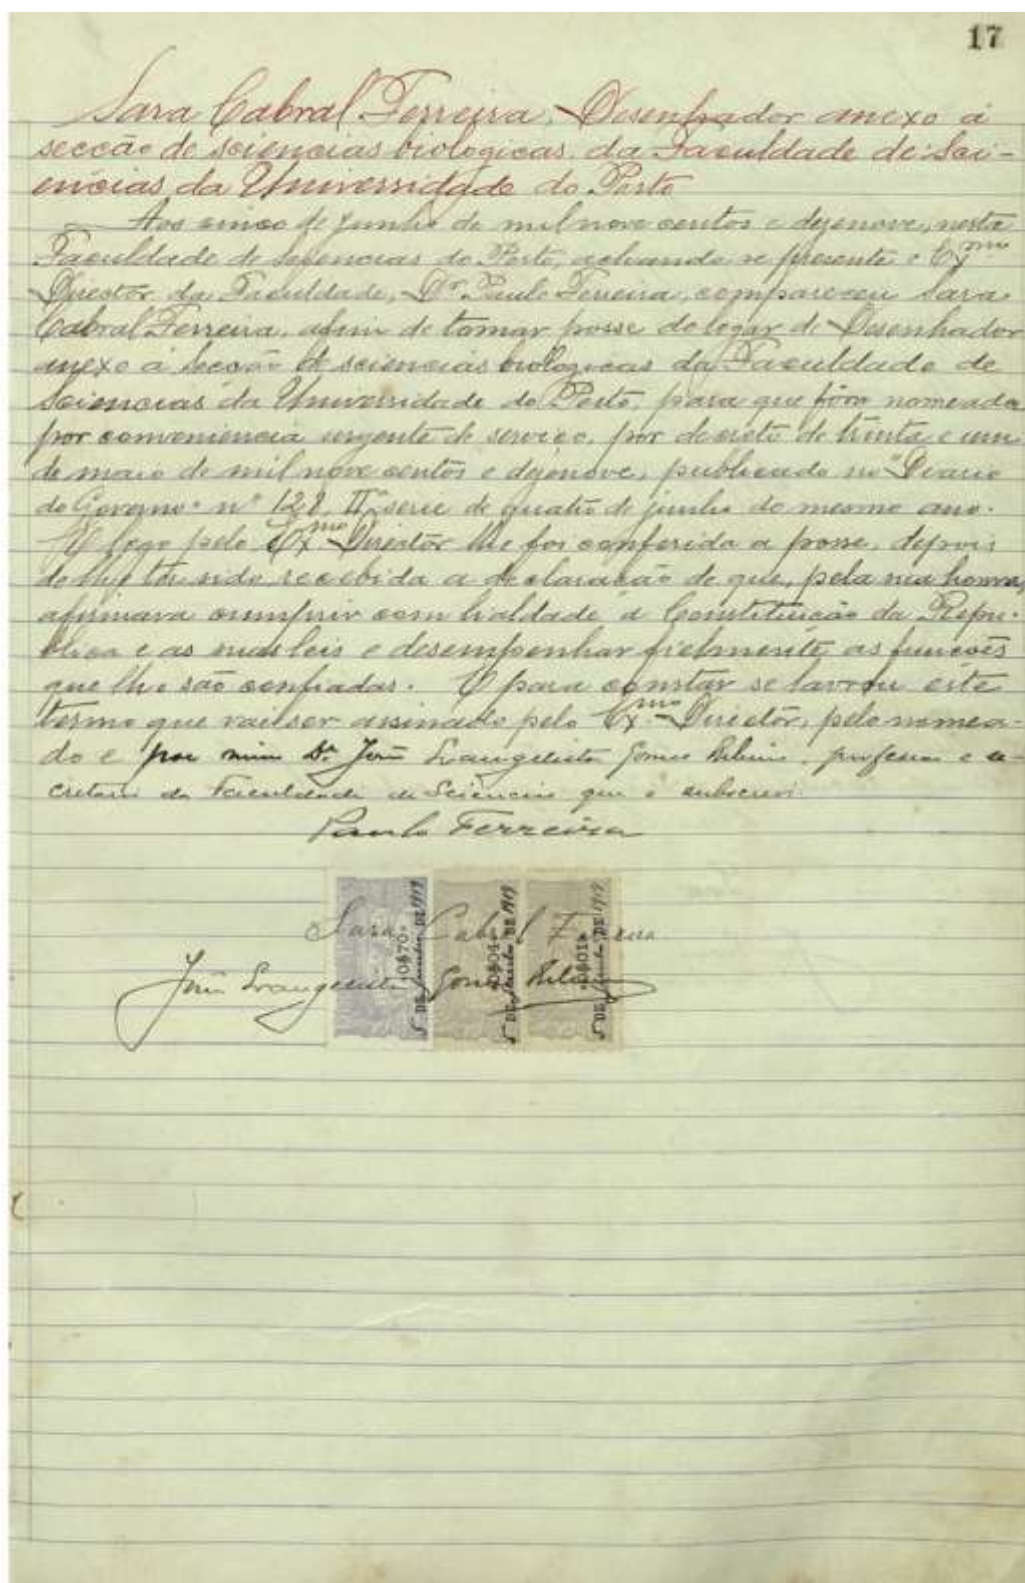 17
Sara Cabral Ferreira, Desenhador anexo á
secção de sciencias biologicas da Faculdade de Sci-
encias da Universidade do Porto
Aos cinco de junho de mil nove centos e dezenove, nesta
Faculdade de Sciencias do Porto, achando se presente o Exmo
Director da Faculdade, Dr. Paulo Ferreira, compareceu Sara
Cabral Ferreira, afim de tomar posse do logar de Desenhador
anexo á Secção de sciencias biologicas da Faculdade de
Sciencias da Universidade do Porto, para que fôra nomeada
por conveniencia urgente de serviço, por decreto de trinta e um
de maio de mil nove centos e dezenove, publicado no "Diario
do Governo" nº 128, IIª serie de quatro de junho do mesmo ano.
E logo pelo Exmo Director lhe foi conferida a posse, depois
de lhe ter sido recebida a declaração de que, pela sua honra,
afirmava cumprir com lealdade a Constituição da Repu-
blica e as suas leis e desempenhar fielmente as funções
que lhe são confiadas. E para constar se lavrou este
termo que vai ser assinado pelo Exmo Director, pelo nomea-
do e por mim Dr. João Evangelista Gomes Ribeiro, professor e se-
cretario da Faculdade de Sciencias que o subscrevi.
Paulo Ferreira
Sara Cabral Ferreira
João Evangelista Gomes Ribeiro
5 DE junho DE 1919
5 DE junho DE 1919
5 DE junho DE 1919